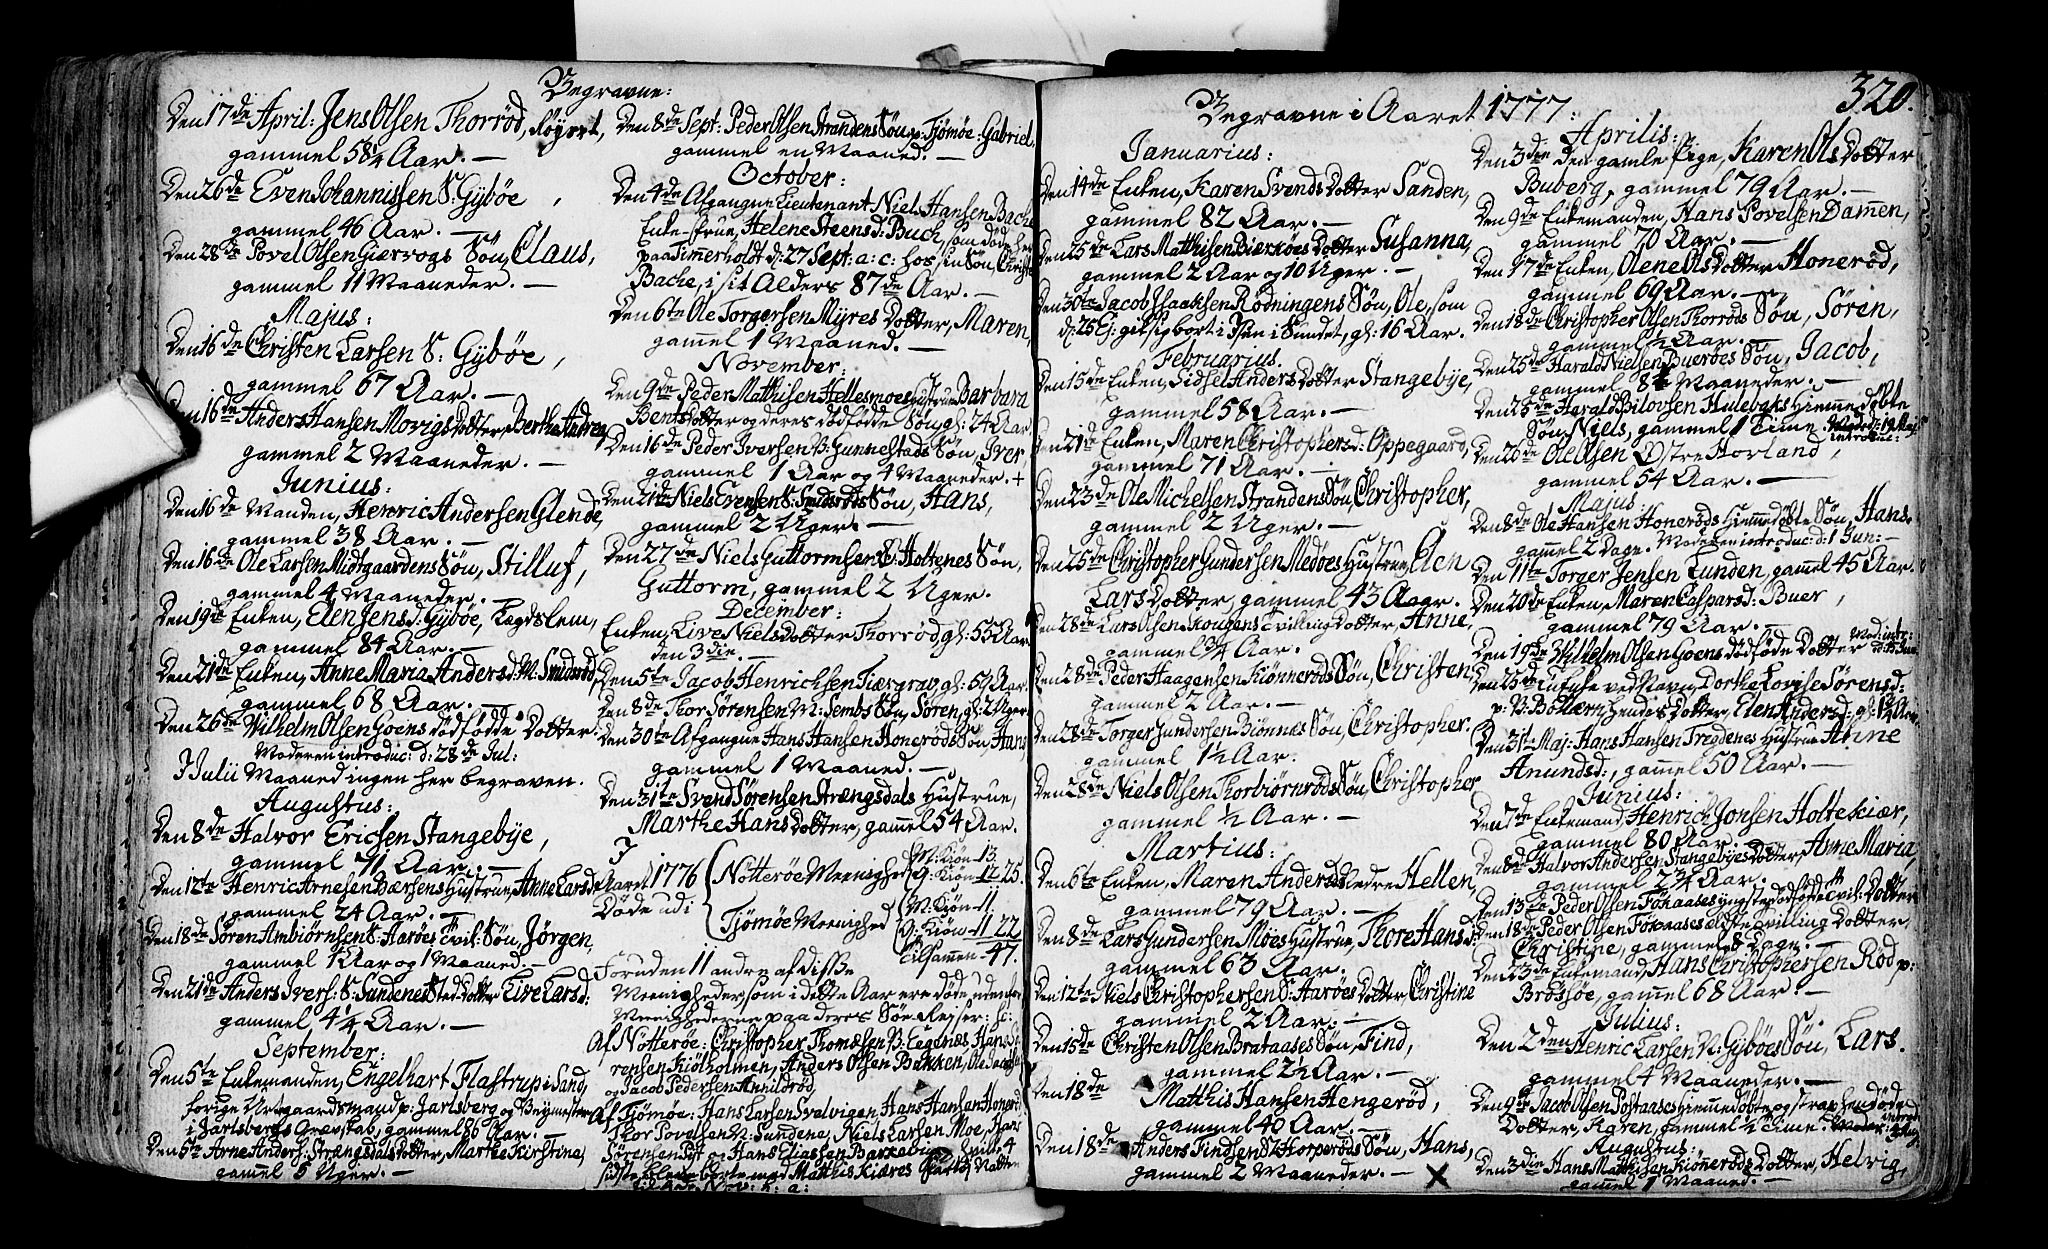 Begravne:
Den 17de April: Jens Olsen Thorrød,
gammel 58¼ Aar. —
Den 26de Even Johannissen S: Gybøe,
gammel 46 Aar. —
Den 28de Povel Olsen Giervogs Søn, Claus,
gammel 11 Maaneder. —
Majus:
Den 16de Christen Larsen S: Gybøe,
gammel 67 Aar. —
Den 16de Anders Hansen Movigs Dotter, Berthe Andrea,
gammel 2 Maaneder. —
Junius:
Den 16de Manden, Henric Andersen Glende,
gammel 38 Aar. —
Den 16de Ole Larsen Midtgaardens Søn, Stilluf,
gammel 4 Maaneder. —
Den 19de Enken, Elen Jensd: Gybøe, Lægdslem,
gammel 84 Aar. —
Den 21de Enken, Anne Maria Andersd: M: Smidsrød,
gammel 68 Aar. —
Den 26de Wilhelm Olsen Goens dødfødde Dotter.
Moderen introduc: d: 28de Jul:
I Julii Maaned ingen her begraven.
Augustus:
Den 8de Halvor Ericsen Stangebye,
gammel 71 Aar. —
Den 12te Henric Arnesen Bærsens Hustrue, Anne Larsd:
gammel 24 Aar. —
Den 18de Søren Ambiørnsen S: Aarøes Tvil: Søn, Jørgen,
gammel 1 Aar og 1 Maaned. —
Den 21de Anders Ivers: S: Sundene Sted-Dotter Live Larsd:
gammel 4¼ Aar. —
September:
Den 5te Enkemanden, Engelhart Flastrup i Sand,
forige Urtegaardsmand p: Jarlsberg og Bygmester
i Jarlsbergs Grevskab, gammel 86 Aar. —
Den 5te Arne Anders: Strengsdals Dotter, Marthe Kirstina,
gammel 5 Uger. —
Den 8de Sept: Peder Olsen Strandens Søn p: Tjømøe: Gabriel,
gammel en Maaned. —
October:
Den 4de Afgangne Lieutenant Niels Hansen Bachs
Enke-frue, Helene Steensd: Buch, som døde her
paa Timmerholdt d: 27 Sept: a: c: hos sin Søn Christen
Bache, i sit Alders 87de Aar. —
Den 6te Ole Torgersen Myres Dotter, Maren,
gammel 1 Maaned. —
November:
Den 9de Peder Mathisen Hellesmoes Hustrue Barbara
Bents Dotter og deres dødfødde Søn, gl: 24 Aar
Den 16de Peder Iversen B: Gunnestads Søn, Iver,
gammel 1 Aar og 4 Maaneder. +
Den 21de Niels Evensen S: Smidsrøds Søn, Hans,
gammel 2 Uger. —
Den 27de Niels Guttormsen Ø: Holtenes Søn,
Guttorm, gammel 2 Uger.
December:
Enken, Live Niels Dotter Thorrød, gl: 53 Aar
den 3die. —
Den 5te Jacob Henrichsen Tiærgrav, gl: 53 Aar.
Den 8de Thor Sørensen M: Sembs Søn, Søren, gl: 2 Uger
Den 30te Afgangne Hans Hansen Honerøds Søn, Hans,
gammel 1 Maaned. —
Den 31te Svend Sørensen Strængsdals Hustrue,
Marthe Hans Dotter, gammel 54 Aar.
I
Aaret 1776
Døde udi
Nøtterøe Meenighed
M: Kiøn 13
Q: Kiøn 12 25.
Tjømøe Meenighed
M: Kiøn 11
Q: Kiøn 11 22
Tilsammen 47.
Foruden 11 andre af disse
Meenigheder som i dette Aar ere døde uden for
Meenighederne paa deres Søe-Rejser: sc:
Af Nøtterøe: Christopher Thomesen B: Hans Sø-
rensen Kiølholmen, Anders Olsen Bakken, Ole
og Jacob Pedersen Annildrød
Af Tjømøe: Hans Larsen Svelvigen, Hans Hansen Honerød
Thor Povelsen N: Sundene, Niels Larsen Moe, Hans
Sørensen og Hans Eliassen
sidste bleve borte med Matthis Kiæres Natten
til Nov: h: a:
320.
Begravne i Aaret 1777:
Januarius:
Den 14de Enken, Karen Svends Dotter Sanden,
gammel 82 Aar. —
Den 25de Lars Matthisen Bierkøes Dotter Susanna,
gammel 2 Aar og 10 Uger. —
Den 30te Jacob Isaaksen Rødningens Søn, Ole, som
d: 25 Ej: gik sig bort i Isen i Sundet, gl: 16 Aar.
Februarius.
Den 15de Enken, Sidsel Anders Dotter Stangebye,
gammel 58 Aar. —
Den 21de Enken, Maren Christophersd: Oppegaard,
gammel 71 Aar. —
Den 23de Ole Michelsen Strandens Søn, Christopher,
gammel 2 Uger. —
Den 25de Christopher Gundersen Medøes Hustrue, Elen
Lars Dotter, gammel 43 Aar.
Den 28de Lars Olsen Skougens Tvilling Dotter, Anne,
gammel ¾ Aar.
Den 28de Peder Haagensen Kiønnerøds Søn, Christen,
gammel 2 Aar. —
Den 28de Torger Gundersen Biønnes Søn, Christopher.
gammel 1½ Aar.
Den 28de Niels Olsen Thorbiørnrøds Søn, Christopher,
gammel ½ Aar. —
Martius:
Den 6te Enken, Maren Andersd: Nedre Hellen,
gammel 79 Aar. —
Den 8de Lars Gundersen Møes Hustrue, Thore Hansd:
gammel 63 Aar.
Den 12te Niels Christophersen S: Aarøes Dotter, Christine
gammel 2 Aar. —
Den 15de Christen Olsen Brataases Søn, Find,
gammel 2½ Aar. —
Den 18de Matthis Hansen Hengerød,
gammel 40 Aar. —
Den 18de Anders Findsen S: Horperøds Søn, Hans,
gammel 2 Maaneder. —
Aprilis:
Den 3den Den gamle Pige, Karen Ols Dotter
Buberg, gammel 79 Aar. —
Den 9de Enkemanden, Hans Povelsen Dammen,
gammel 70 Aar. —
Den 17de Enken, Olene Ols Dotter Honerød,
gammel 69 Aar. —
Den 18de Christopher Olsen Thorrøds Søn, Søren,
gammel ½ Aar. —
Den 25de Harald Nielsen Buerøes Søn, Jacob,
gammel 8 Maaneder. —
Den 25de Harald Bilovsen Hulebaks Hjemmedøbte
Søn, Niels, gammel 1 Time. Moder d: 19 Maj:
introduc:
Den 26de Ole Olsen Østre Hovland,
gammel 54 Aar. —
Majus.
Den 8de Ole Hansen Honerøds Hjemmedøbte Søn, Hans.
gammel 2 Dage. Moderen introduc: d: 1 Jun: —
Den 11te Torger Jensen Lunden, gammel 45 Aar.
Den 20de Enken, Maren Caspersd: Buer,
gammel 79 Aar. —
Den 19de Wilhelm Olsen Goens dødføde Dotter Mod: intr:
d: 15 Jun:
Den 25de Enken ved Navn, Dorthe Lovise Sørensd:
p: V: Bollærn hendes Dotter, Elen Andersd: gl: 1¼ Aar.
Den 31te Maj: Hans Hansen Tregdenes Hustrue Anne
Anundsd:, gammel 50 Aar. —
Junius:
Den 7de Enkemand, Henrich Jonsen Holtekiær,
gammel 80 Aar. —
Den 8de Halvor Andersen Stangebyes Dotter, Anne Maria,
gammel 2¾ Aar. —
Den 13de Peder Olsen Foxaases yngste dødfødte tvil: Dotter
Den 18de Peder Olsen Foxaases eldste tvilling Dotter,
Christine, gammel 8 Dage. —
Den 23de Enkemand, Hans Christophersen Rød p:
Brøtsøe, gammel 68 Aar. —
Julius:
Den 2den Henric Larsen N: Gybøes Søn, Lars.
gammel 4 Maaneder. —
Den 9de Jacob Olsen Postaases hiemmedøbte og strax hendøde
Dotter, Karen, gammel ½ Time.
Augustus:
Den 3die Hans Mathisen Kiønnerøds Dotter, Helvig,
gammel 1 Maaned. —